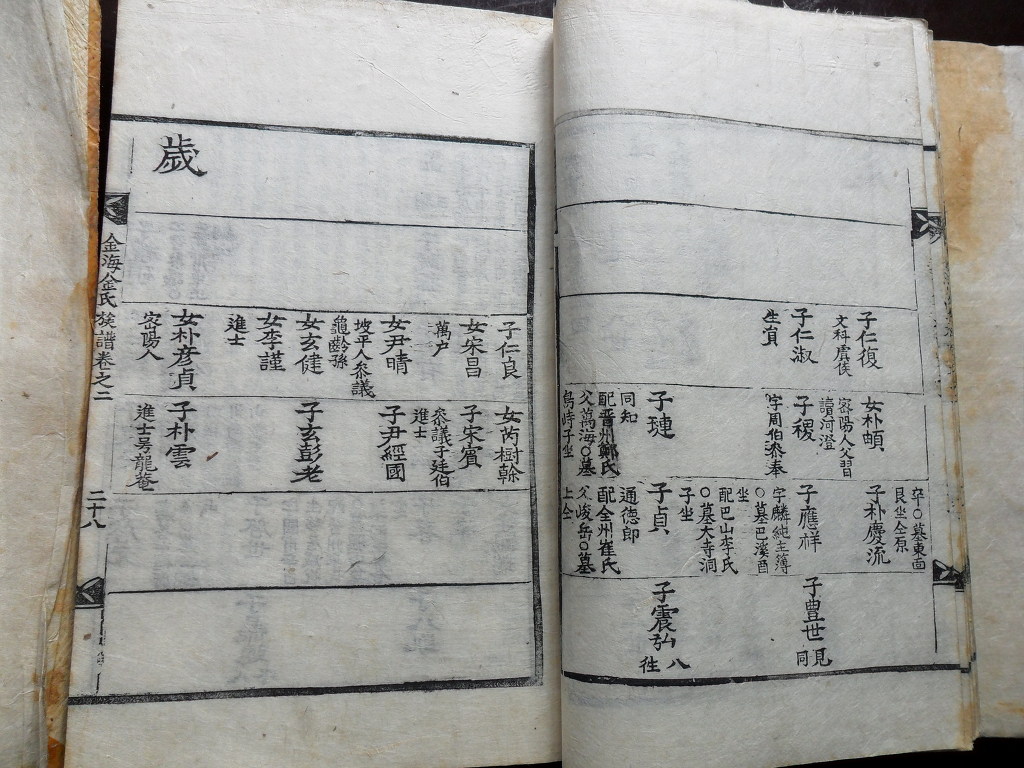 子仁復
文科虞侯
子仁淑
生員
女朴䪼
密陽人父習
讀河澄
子稷
字周伯叅奉
子璉
同知
配晋州鄭氏
父萬海○墓
烏峙子坐
卒○墓東面
艮坐仝原
子朴慶流
子應祥
字麟純主簿
○墓巴溪酉
坐
配巴山李氏
○墓大寺洞
子坐
子貞
通德郎
配全州崔氏
父峻岳○墓
上仝
子豊世
見
同
子震弘
八
徃
子仁良
女宋昌
萬户
女尹晴
坡平人叅議
龜齡孫
女玄健
女李謹
進士
女朴彦貞
密陽人
女芮樹幹
子宋賓
叅議子廷伯
進士
子尹經國
子玄彭老
子朴雲
進士号龍菴
歲
金海金氏族譜卷之二
二十八